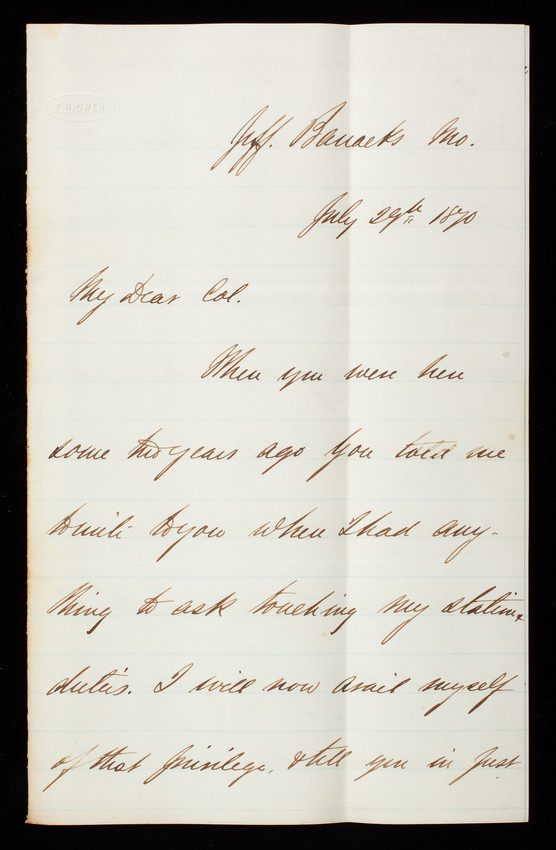 E.H. OWEN
Jeff. Barracks Mo.
July 29th 1870
My Dear Col.
When you were here
some two years ago you told me
to write to you when I had any-
thing to ask touching my station &
duties. I will now avail myself
of that privilege, & tell you in just